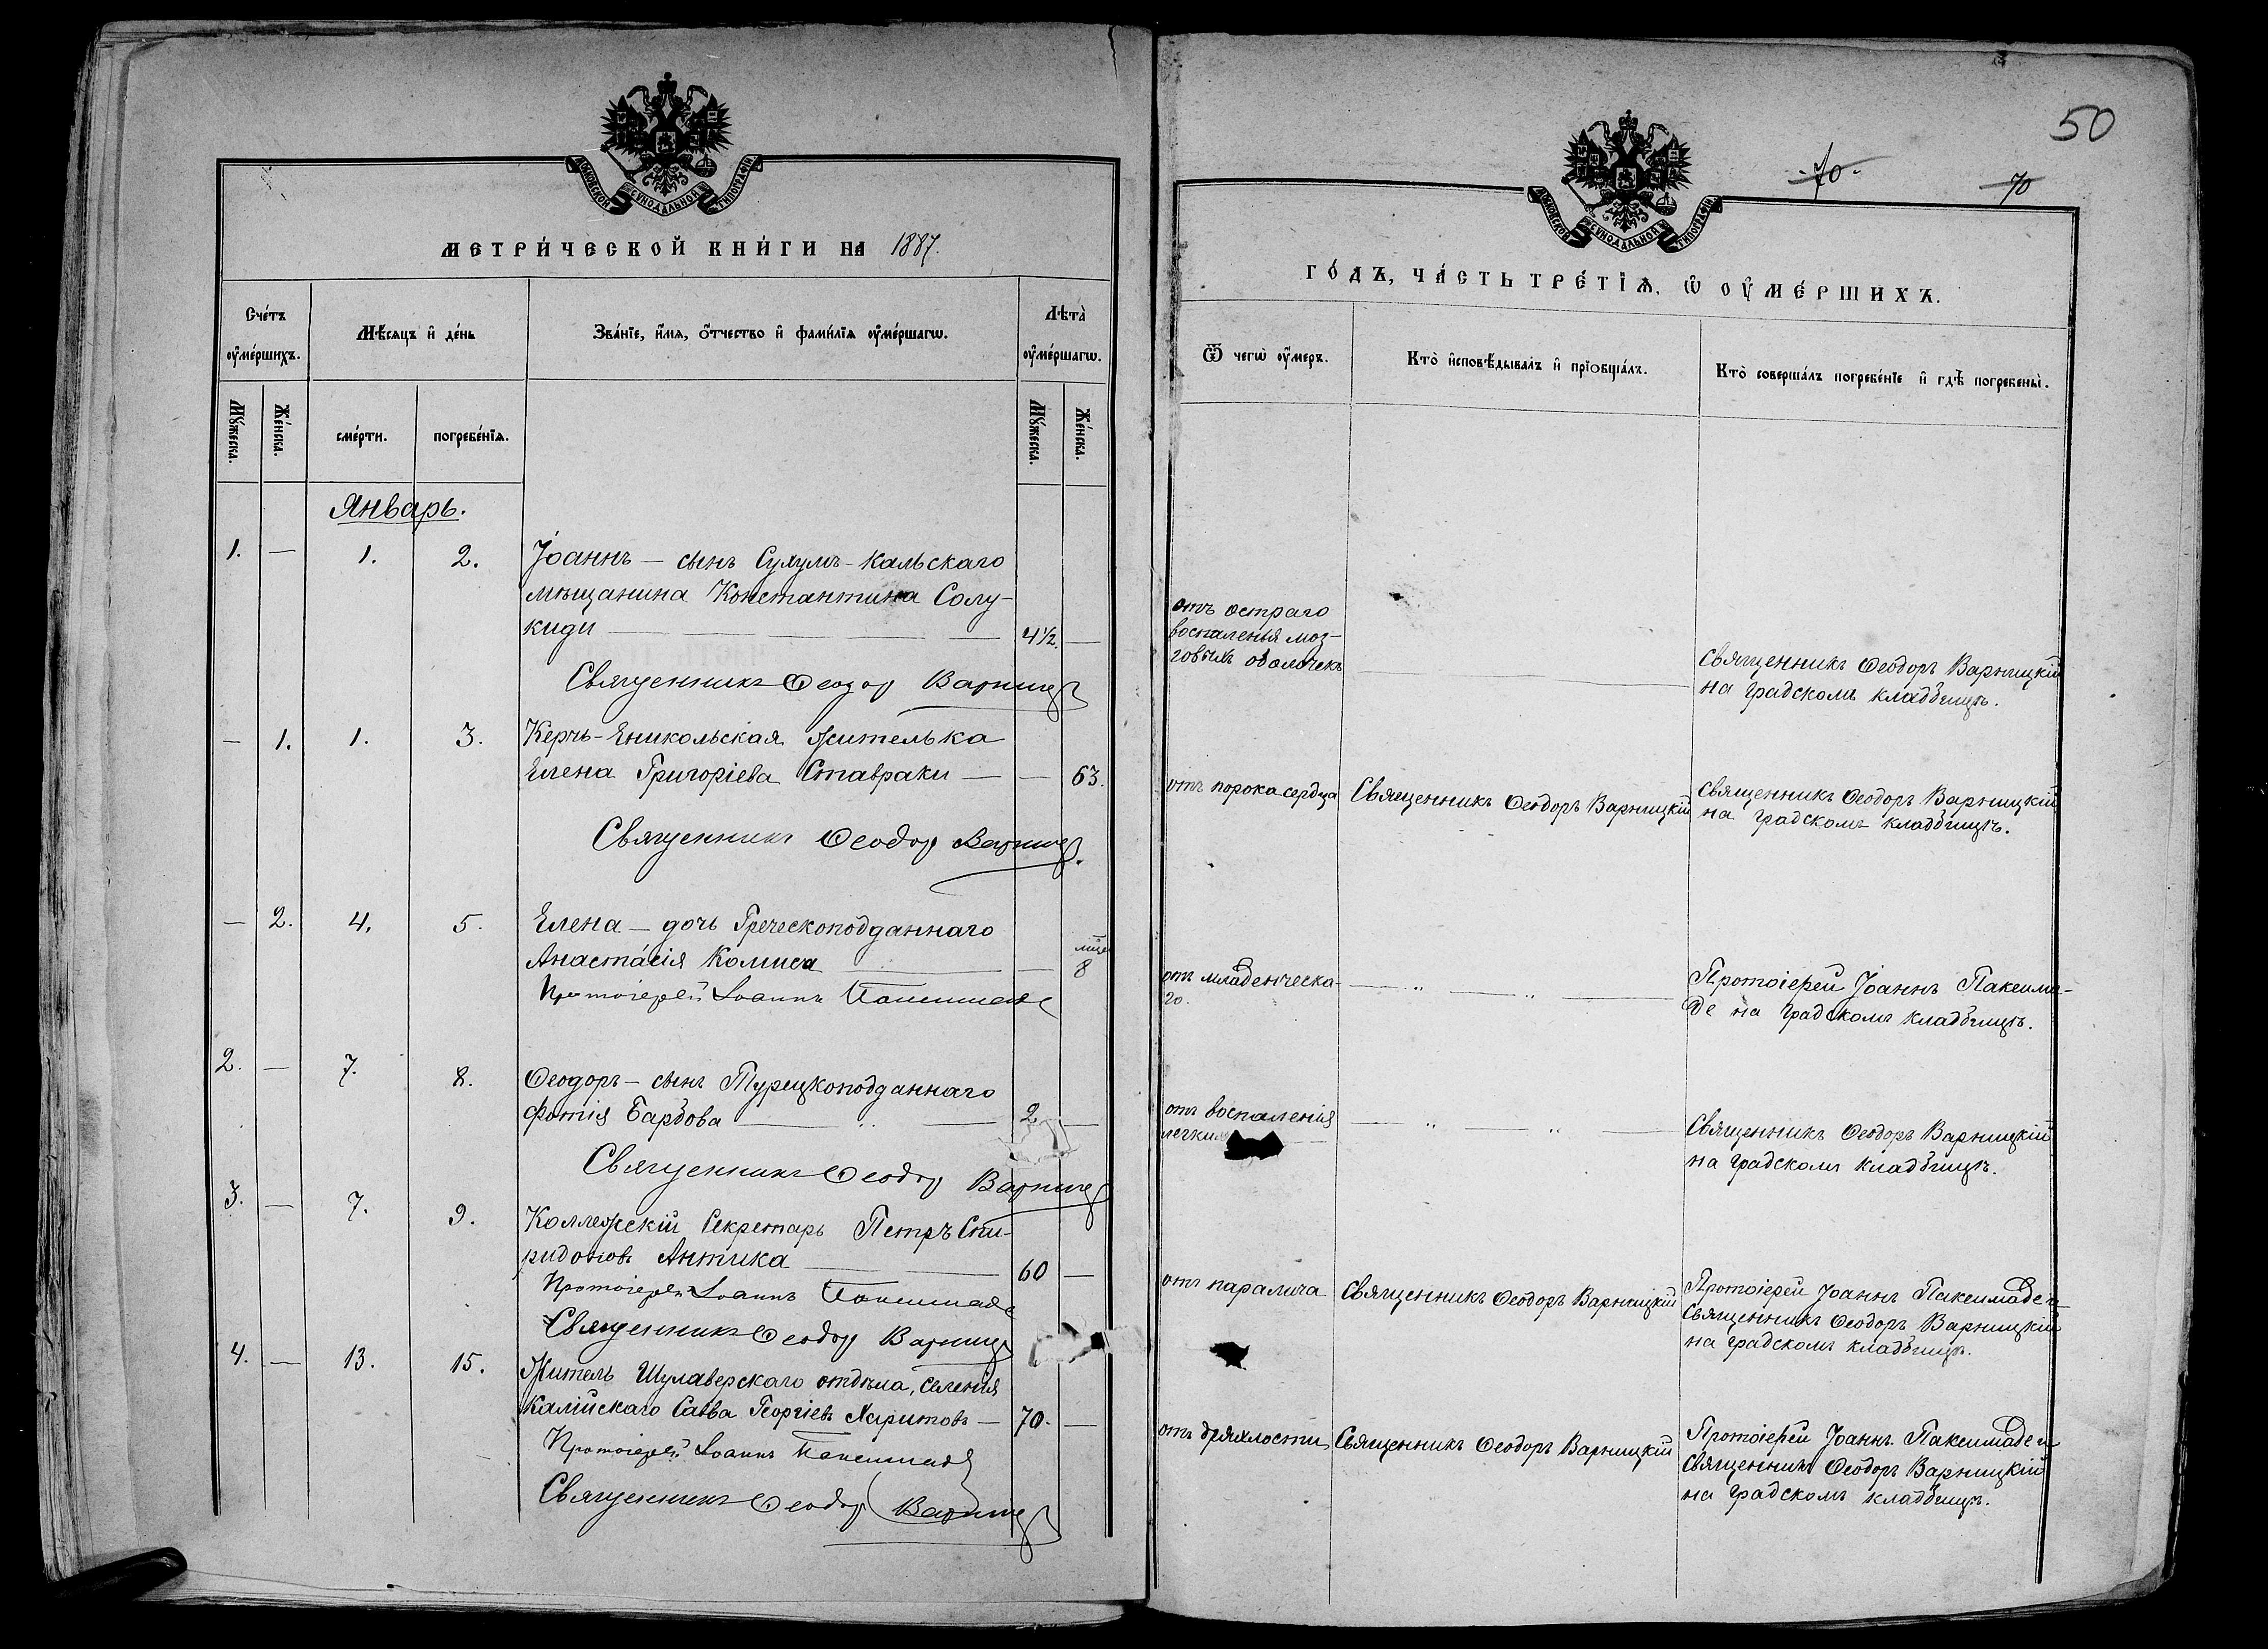 50
70
70
МОСКОВСКОЙ СѴНОДАЛЬНОЙ ТИПОГРАФІИ
МЕТРИ́ЧЕСКОЙ КНИ́ГИ НА 1887.
Сче́тъ ᲂу҆ме́ршихъ.
Мѣ́сяцъ и҆ де́нь
Зва́нїе, и҆́мѧ, ѻ҆́тчество и҆ фами́лїѧ ᲂу҆ме́ршагѡ.
Лѣта̀ ᲂу҆ме́ршагѡ.
Мꙋ́жеска.
Же́нска.
сме́рти.
погребе́нїѧ.
Мꙋ́жеска.
Же́нска.
Январь.
1. — 1. 2. Іоаннъ — сынъ Сухумъ-Кальскаго
мѣщанина Константина Солу-
киди — 4½. —
Священникъ Ѳеодор Варниц
— 1. 1. 3. Керчь-Еникольская жителька
Елена Григоріева Ставраки — — 63.
Священникъ Ѳеодор Варниц
— 2. 4. 5. Елена — дочь Греческоподданнаго
Анастасія Комиса — — 8
Протоіерей Іоаннъ Паксимаде
2. — 7. 8. Ѳеодоръ — сынъ Турецкоподданнаго
Фотія Барбова — 2 —
Священникъ Ѳеодор Варниц
3. — 7. 9. Коллежскій Секретарь Петръ Спи-
ридоновъ Антика — 60 —
Протоіерей Іоаннъ Паксимаде
Священникъ Ѳеодор Варниц
4. — 13. 15. Житель Шулаверскаго отдѣла, селенія
Калійскаго Савва Георгіевъ Харитовъ — 70. —
Протоіерей Іоаннъ Паксимаде
Священникъ Ѳеодор Варниц
МОСКОВСКОЙ СѴНОДАЛЬНОЙ ТИПОГРАФІИ
ГО́ДЪ, ЧА́СТЬ ТРЕ́ТІѦ, Ѡ҆ ОУ҆МЕ́РШИХЪ.
Ѿ чегѡ̀ ᲂу҆́меръ.
Кто̀ и҆сповѣ́дывалъ и҆ прїѡбща́лъ.
Кто̀ соверша́лъ погребе́нїе и҆ гдѣ̀ погребены̀.
отъ остраго
воспаленья моз-
говыхъ оболочекъ
Священникъ Ѳеодоръ Варницкій
на градскомъ кладбищѣ.
отъ порока сердца
Священникъ Ѳеодоръ Варницкій
Священникъ Ѳеодоръ Варницкій
на градскомъ кладбищѣ.
отъ младенческа-
го.
— „ — „ —
Протоіерей Іоаннъ Паксима-
де на градскомъ кладбищѣ.
отъ воспаленія
легкихъ
— „ — „ —
Священникъ Ѳеодоръ Варницкій
на градскомъ кладбищѣ.
отъ паралича
Священникъ Ѳеодоръ Варницкій
Протоіерей Іоаннъ Паксимаде и
Священникъ Ѳеодоръ Варницкій
на градскомъ кладбищѣ.
отъ дряхлости
Священникъ Ѳеодоръ Варницкій
Протоіерей Іоаннъ Паксимаде и
Священникъ Ѳеодоръ Варницкій
на градскомъ кладбищѣ.